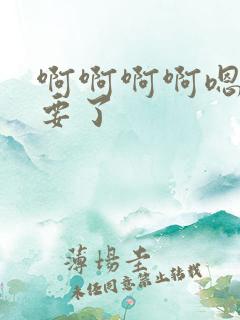 啊啊啊啊嗯
要了
薄場圭
未经同意禁止转载